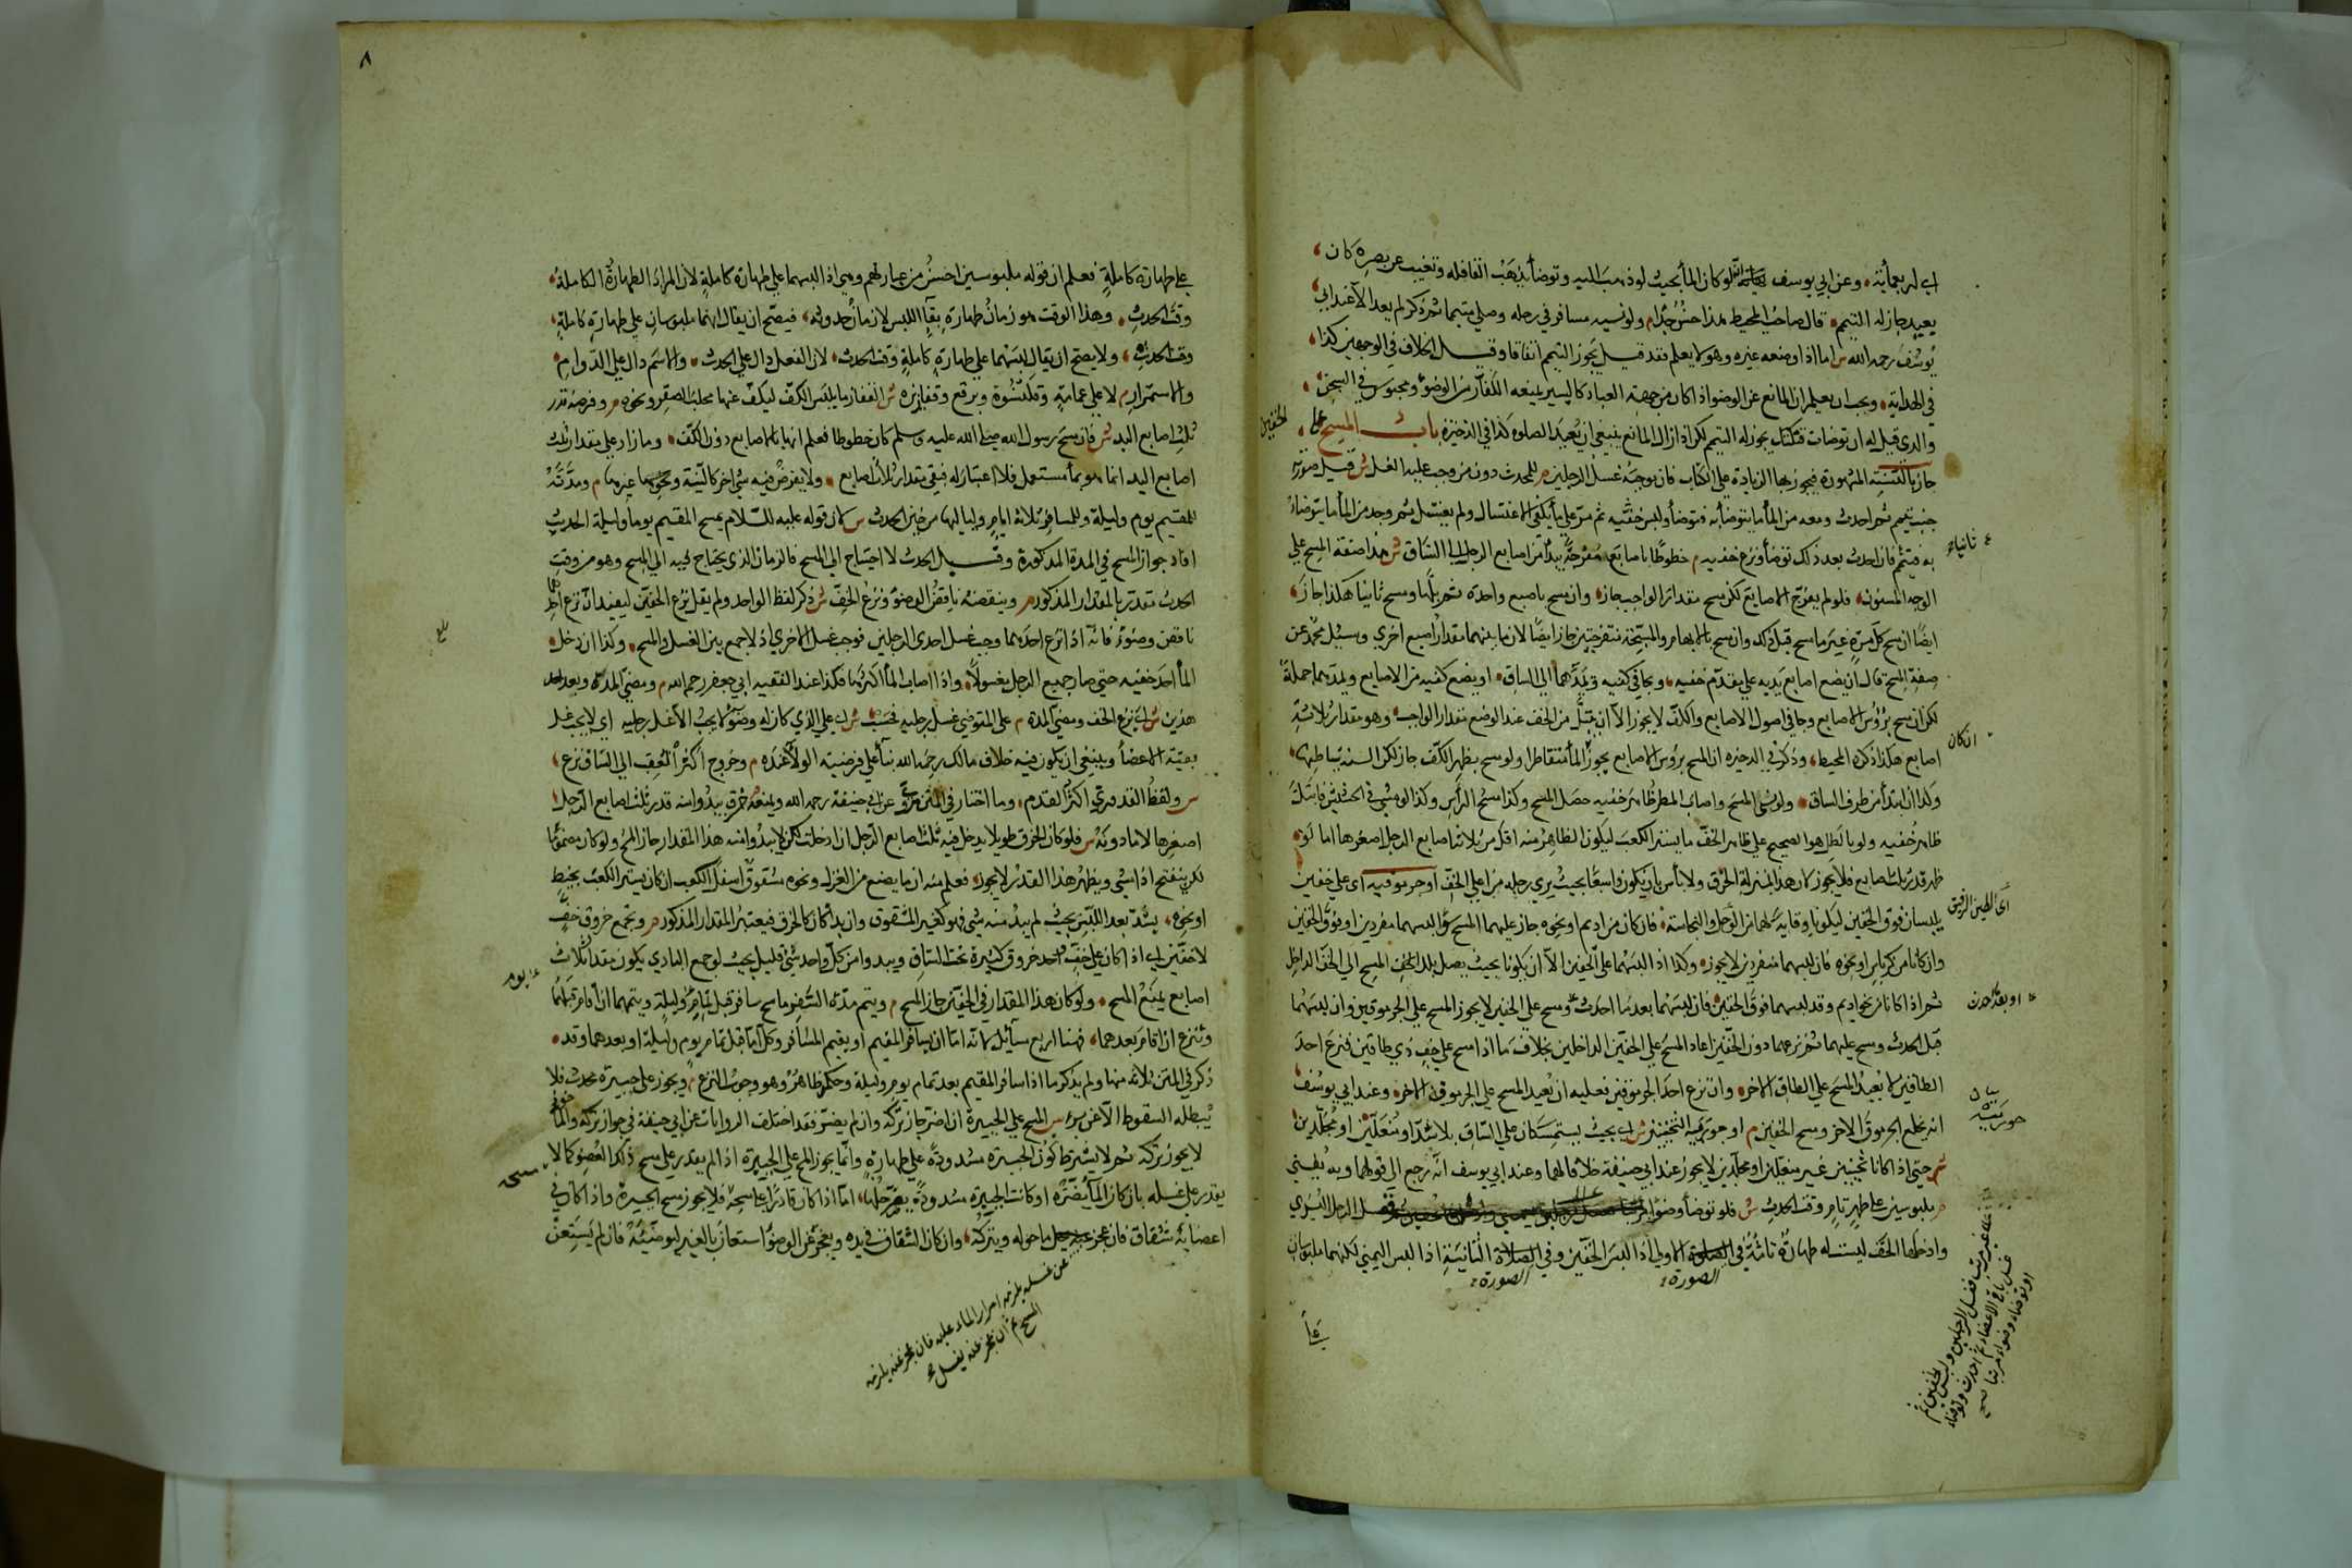 اى لم يعد ما بقيته وعن ابى يوسف رحمه الله لو كان الماء بحيث لو ذهب اليه وتوضأ يذهب القافله وتغيب عن بصره كان
بعيدا جاز له التيمم قال صاحب المحيط هذا حسن جدا م ولو نسيه مسافر في رحله وصلى متيمما ثم ذكر لم يعد الا عند ابي
يوسف رحمه الله س اما اذا وضعه غيره وهو لا يعلم فقد قيل يجوز التيمم اتفاقا وقيل الخلاف في الوجهين كذا
في الهداية ويجب ان يعلم ان المانع عن الوضو اذا كان من جهة العباد كاسير يمنعه الكفار من الوضوء ومحبوس في السجن
والذي قيل له ان توضأت قتلتك يجوز له التيمم لكن اذا زال المانع ينبغي ان يعيد الصلوة كذا في الذخيرة باب المسح على
الخفين
جاز بالسنة المشهورة فيجوز بها الزيادة على الكتاب فان موجبه غسل الرجلين م للمحدث دون من وجب عليه الغسل ش قيل صورته
جنب تيمم ثم احدث ومعه من الماء ما يتوضأ به فتوضأ ولبس خفيه ثم مر على ماء يكفي الاغتسال ولم يغتسل ثم وجد من الماء ما يتوضأ
به فتيمم فان احدث بعد ذلك توضأ ونزع خفيه م خطوطا باصابع مفرجة يبدأ من اصابع الرجل الى الساق ش هذا صفة المسح على
الوجه المسنون فلو لم يفرج الاصابع لكن مسح مقدار الواجب جاز وان مسح باصبع واحدة ثم بلها ومسح ثانيا هكذا جاز
ايضا ان مسح كل مرة غير ما مسح قبل ذلك وان مسح بالابهام والمسبحة منفرجتين جاز ايضا لان ما بينهما مقدار اصبع اخرى وسئل محمد عن
صفة المسح قال ان يضع اصابع يديه على مقدم خفيه ويجافي كفيه ويمدهما الى الساق او يضع كفيه مع الاصابع ويمدهما جملة
لكن ان مسح برؤس الاصابع وجافى اصول الاصابع والكف لا يجوز الا ان يبتل من الخف عند الوضع مقدار الواجب وهو مقدار ثلاثة
اصابع هكذا ذكره المحيط وذكر في الذخيره ان المسح برؤس الاصابع يجوز ان كان الماء متقاطرا ولو مسح بظهر الكف جاز لكن السنة بباطنها
وكذا ان ابتدأ من طرف الساق ولو نسى المسح واصاب المطر ظاهر خفيه حصل المسح وكذا مسح الرأس وكذا لو مشى في الحشيش فابتل
ظاهر خفيه ولو بالطل هو الصحيح على ظاهر الخف ما يستر الكعب ليكون الظاهر منه اقل من ثلاث اصابع الرجل اصغرها اما لو
ظهر قدر ثلث اصابع فلا يجوز لان هذا بمنزلة الخرق ولا بأس بان يكون واسعا بحيث يرى رجله من اعلى الخف او جرموقيه اى على خفين
يلبسان فوق الخفين ليكونا وقاية لهما من الوحل والنجاسة فان كان من اديم او نحوه جاز عليهما المسح سواء لبسهما منفردين او فوق الخفين
وان كانا من كرباس او نحوه فان لبسهما منفردين لا يجوز وكذا اذا لبسهما على الخفين الا ان يكونا بحيث يصل بلل المسح الى الخف الداخل
ثم اذا كانا من نحو اديم وقد لبسهما فوق الخفين فان لبسهما بعد ما احدث ومسح على الخفين لا يجوز المسح على الجرموقين وان لبسهما
قبل الحدث ومسح عليهما ثم نزعهما دون الخفين اعاد المسح على الخفين الداخلين بخلاف ما اذا مسح على خف ذي طاقين فنزع احد
الطاقين لا يعيد المسح على الطاق الاخر وان نزع احد الجرموقين فعليه ان يعيد المسح على الجرموق الاخر وعند ابي يوسف
انه يخلع الجرموق الاخر ومسح الخفين م او جوربيه الثخينين ش اى بحيث يستمسكان على الساق بلا شد او منعلين او مجلدين
حتى اذا كانا ثخينين غير منعلين او مجلدين لا يجوز عند ابي حنيفة خلافا لهما وعند ابي يوسف انه رجع الى قولهما وبه يفتى
م ملبوسين على طهر تام وقت الحدث ش فلو توضأ وضوأ غسل الرجل اليسرى
وادخلها الخف ليست له طهارة تامة في الصلوة الاولى اذا لبس الخفين وفي الصلاة الثانية اذا لبس اليمنى لكنهما ملبوسان
الصورة الصورة
ثانيا
ان كان
اى الطين الرقيق
او بعد احدث
جوربيه
على غير مرتب فغسل الرجلين ولبس الخفين ثم
غسل باقي الاعضاء ثم احدث وتوضأ
او توضأ وضوأ مرتبا صح
٨
على طهارة كاملة فعلم ان قوله ملبوسين احسن من عبارتهم وهي اذا لبسهما على طهارة كاملة لان المراد الطهارة الكاملة
وقت الحدث وهذا الوقت هو زمان طهارة بقاء اللبس لا زمان حدوثه فيصح ان يقال انهما ملبوسان على طهارة كاملة
وقت الحدث ولا يصح ان يقال لبسهما على طهارة كاملة وقت الحدث لان الفعل دال على الحدث والاسم دال على الدوام
والاستمرار م لا على عمامة وقلنسوة وبرقع وقفازين ش القفاز ما يلبس الكف ليكف عنها مخلب الصقر ونحوه م وفرضه قدر
ثلث اصابع اليد ش فان مسح رسول الله صلى الله عليه وسلم كان خطوطا فعلم انها بالاصابع دون الكف وما زاد على مقدار ثلث
اصابع اليد انما هو بماء مستعمل فلا اعتبار له فبقي مقدار ثلاث اصابع ولا يفرض فيه شئ اخر كالنية ونحوها غيرها م ومدته
للمقيم يوم وليلة وللمسافر ثلاثة ايام ولياليها من حين الحدث س لان قوله عليه السلام يمسح المقيم يوما وليلة الحديث
افاد جواز المسح في المدة المذكورة وقبل الحدث لا احتياج الى المسح فالزمان الذي يحتاج فيه الى المسح وهو من وقت
الحدث مقدر بالمقدار المذكور م وينقضه ناقض الوضوء ونزع الخف ش ذكر لفظ الواحد ولم يقل نزع الخفين ليفيد ان نزع احدهما
ناقض وضوء فانه اذا نزع احدهما وجب غسل احدى الرجلين فوجب غسل الاخرى اذ لا جمع بين الغسل والمسح وكذا ان دخل
الماء احد خفيه حتى صار جميع الرجل مغسولا واذا اصاب الماء اكثرها فكذا عند الفقيه ابي جعفر رحمه الله م ومضى المدة وبعد احد
هذين ش اى نزع الخف ومضى المدة م على المتوضي غسل رجليه فحسب ش اى على الذي كان له وضوء لا يجب الا غسل رجليه اى لا يجب غسل
بقية الاعضاء وينبغي ان يكون فيه خلاف مالك رحمه الله بناء على فرضية الولاء عنده م وخروج اكثر العقب الى الساق نزع
س ولفظ القدوري اكثر القدم وما اختار في المتن مروي عن ابي حنيفة رحمه الله ويمنعه خرق يبدو منه قدر ثلث اصابع الرجل
اصغرها لا ما دونه س فلو كان الخرق طويلا يدخل فيه ثلث اصابع الرجل ان ادخلت لكن لا يبدو منه هذا المقدار جاز المسح ولو كان مضموما
لكن ينفتح اذا مشى ويظهر هذا القدر لا يجوز فعلم منه ان ما يصنع من الغزل ونحوه مشقوق اسفل الكعب ان كان يستر الكعب بخيط
او نحوه يشد بعد اللبس بحيث لم يبد منه شئ فهو كغير المشقوق وان بدا كان كالخرق فيعتبر المقدار المذكور م وتجمع خروق خف
لا خفين اى اذا كان على خف واحد خروق كثيرة تحت الساق ويبدو من كل واحد شئ قليل بحيث لو جمع البادي يكون مقدار ثلاث
اصابع يمنع المسح ولو كان هذا المقدار في الخفين جاز المسح م ويتم مدة السفر ماسح سافر قبل تمام يوم وليلة ويتمهما ان اقام قبلهما
ونزع ان اقام بعدهما فهنا اربع مسائل لانه اما ان يسافر المقيم او يقيم المسافر وكل اما قبل تمام يوم وليلة او بعدهما وقد
ذكر في المتن ثلاثة منها ولم يذكر ما اذا سافر المقيم بعد تمام يوم وليلة وحكمه ظاهر وهو وجوب النزع م ويجوز على جبيرة محدث فلا
يبطله السقوط الا عن برء س المسح على الجبيرة ان اضر جاز تركه وان لم يضر فقد اختلف الروايات عن ابي حنيفة في جواز تركه والمأخوذ
لا يجوز تركه ثم لا يشترط كون الجبيرة مشدودة على طهارة وانما يجوز المسح على الجبيرة اذا لم يقدر على مسح ذلك العضو كما لا
يقدر على غسله بان كان الماء يضره او كانت الجبيرة مشدودة يضر حلها اما اذا كان قادرا على مسحه فلا يجوز مسح الجبيرة واذا كان في
اعضائه شقاق فان عجز ما حوله ويتركه وان كان الشقاق في يده ويعجز عن الوضوء استعان بالغير ليوضئه فان لم يستعن
يوم
عن غسله يلزمه امرار الماء عليه فان عجز عنه يلزمه
المسح ثم ان عجز عنه يغسل